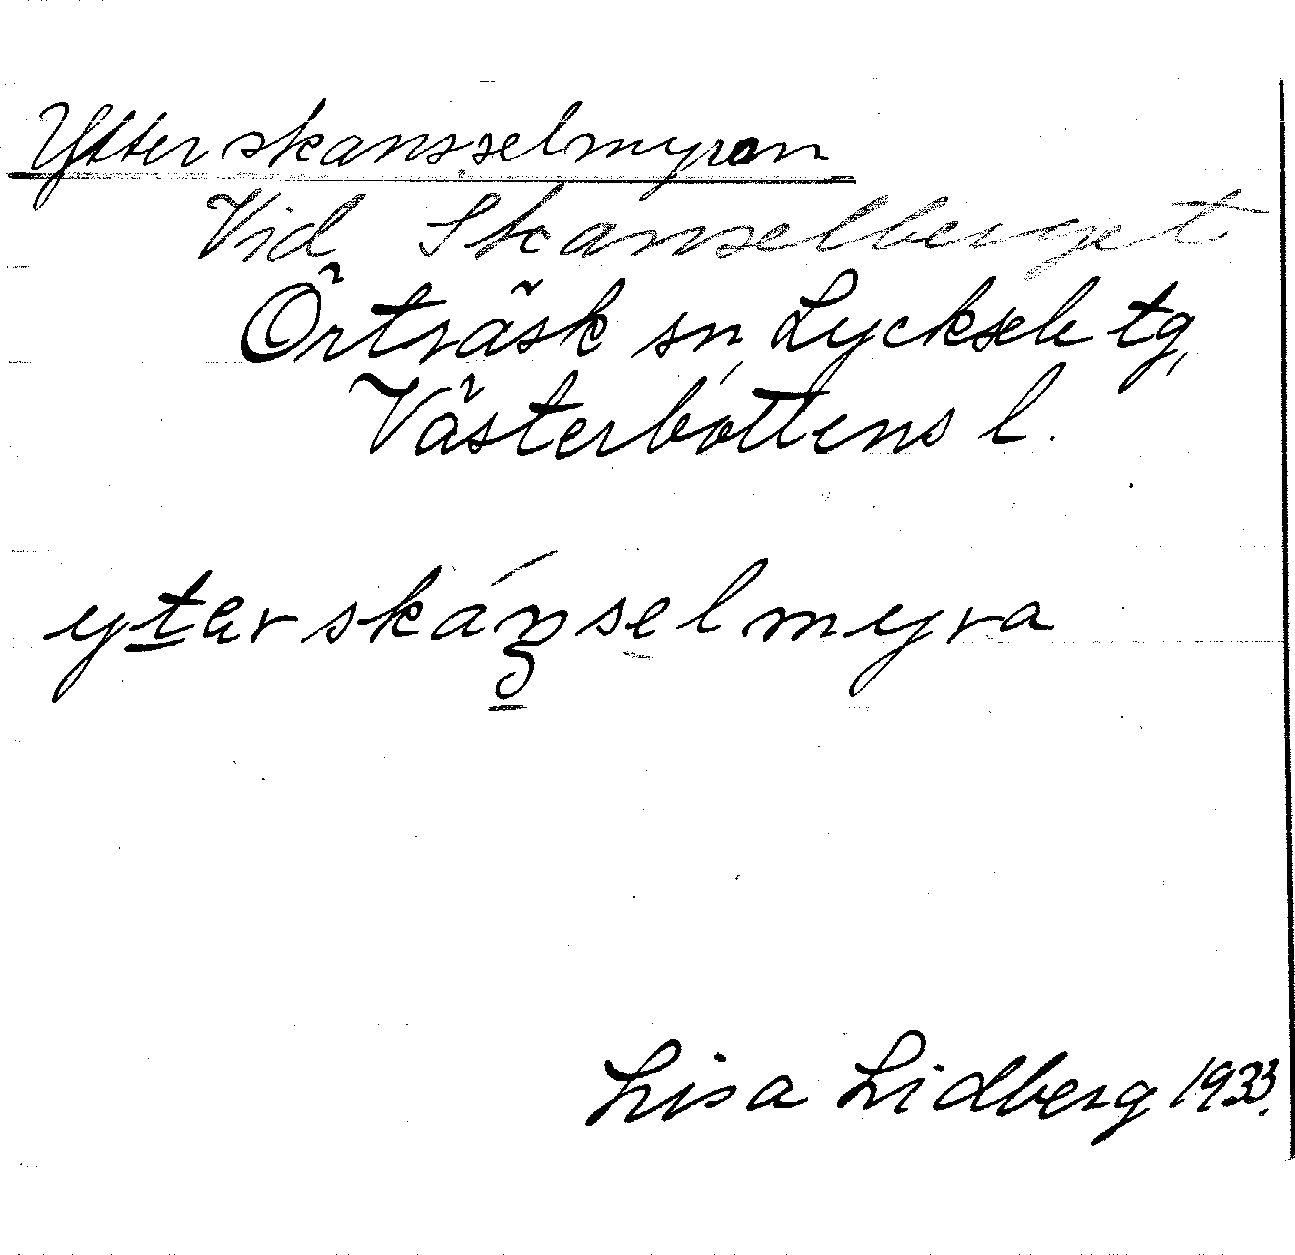 Ytterskansselmyran
Vid Skanselberget
Örträsk sn, Lycksele tg,
Västerbottens l.
ytər skánselmyra
Lisa Lidberg 1933.